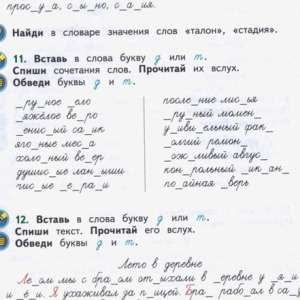 прос_у_а, с_ы_но, с_а_ия.
Найди в словаре значения слов «талон», «стадия».
11. Вставь в слова букву д или т.
Спиши сочетания слов. Прочитай их вслух.
Обведи буквы д и т.
_ру_ное _ело
_яжёлое ве_ро
_енис_ый са_ик
яго_ные мес_а
холо_ный ве_ер
душис_ые лан_ыши
чис_ые _е_ра_и
после_ние лис_ья
_ру_ный момен_
у_иви_ельный фак_
_олгий ремон_
_ож_ливый авгус_
кон_рольный _ик_ан_
по_айная _верь
12. Вставь в слова букву д или т.
Спиши текст. Прочитай его вслух.
Обведи буквы д и т.
Лето в деревне
Ле_ом мы с бра_ом от_ыхали в _еревне у _я_и
и _е_и. Я ухаживал за п_ицей. Бра_ рабо_ал в са_у